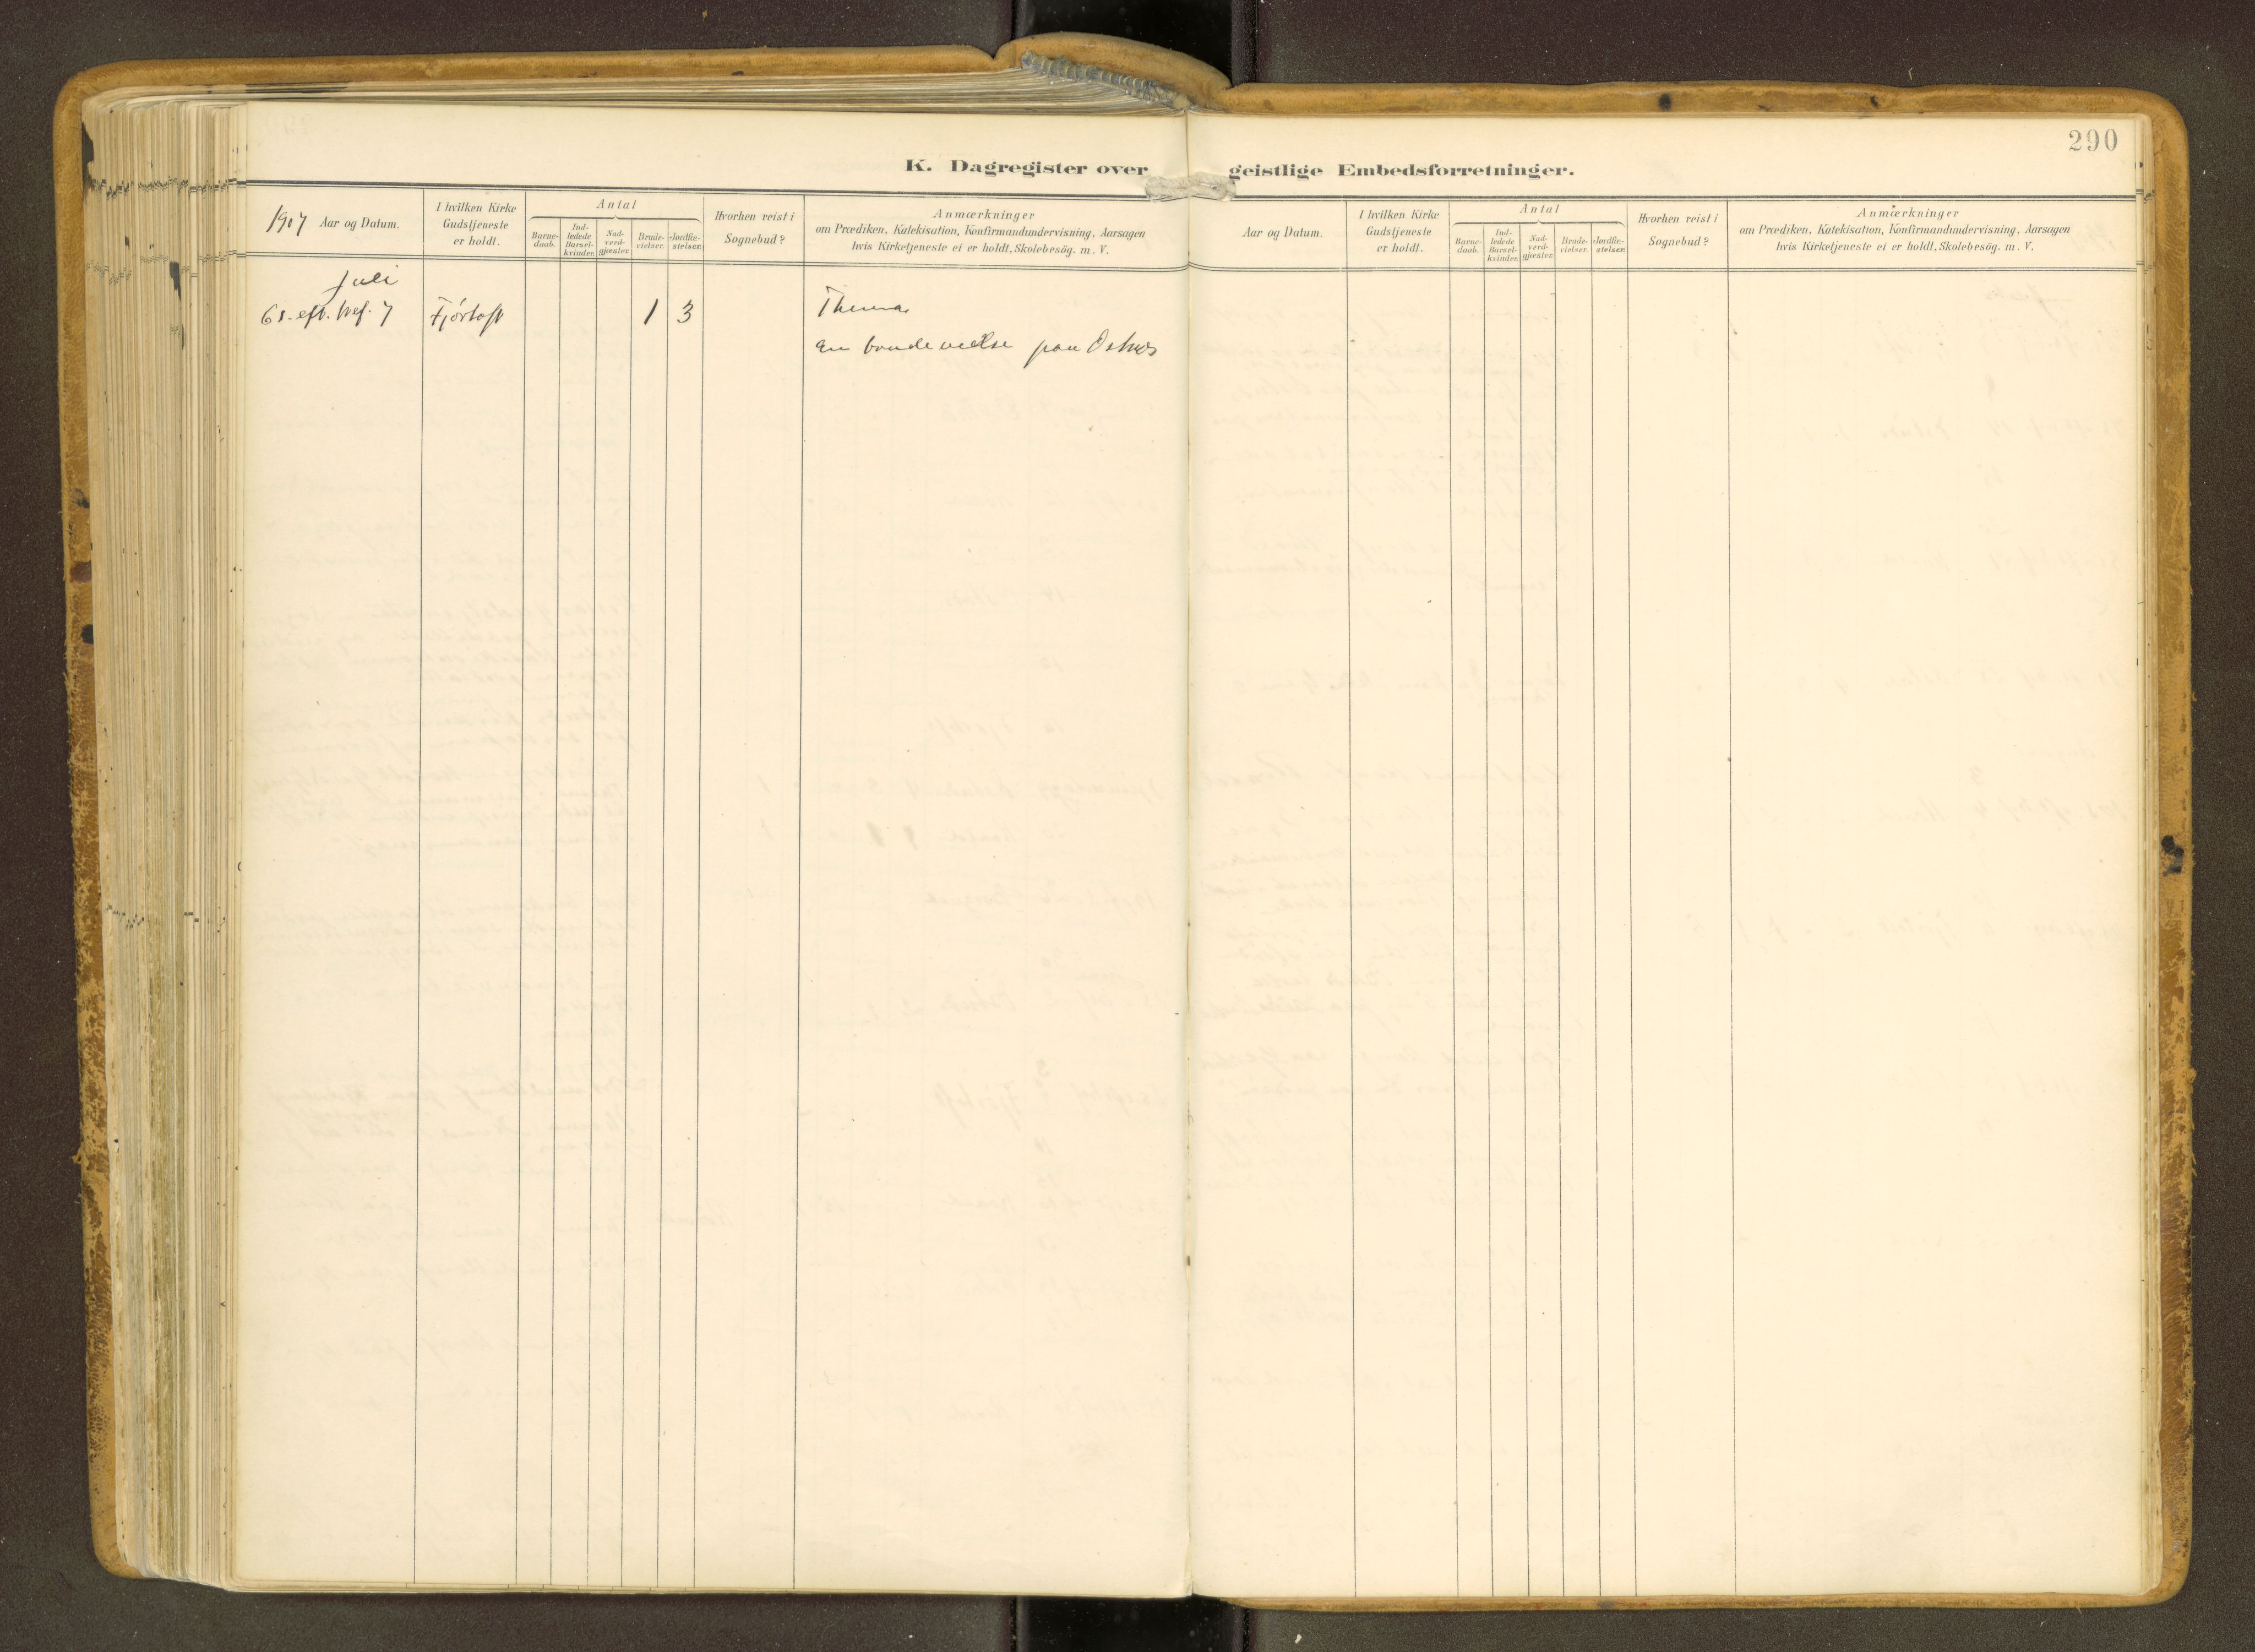 290
K. Dagregister over geistlige Embedsforretninger.
1907 Aar og Datum.
I hvilken Kirke
Gudstjeneste
er holdt.
Antal
Barne-
daab.
Ind-
ledede
Barsel-
kvinder.
Nad-
verd-
gjæster.
Brude-
vielser.
Jordfæ-
stelser.
Hvorhen reist i
Sognebud?
Anmærkninger
om Prædiken, Katekisation, Konfirmandundervisning, Aarsagen
hvis Kirketjeneste ei er holdt, Skolebesög. m. V.
Juli
6 s. eft. tref. 7 Fjørtoft 1 3
en brudevielse paa Østnes
Aar og Datum.
I hvilken Kirke
Gudstjeneste
er holdt.
Antal
Barne-
daab.
Ind-
ledede
Barsel-
kvinder.
Nad-
verd-
gjæster.
Brude-
vielser.
Jordfæ-
stelser.
Hvorhen reist i
Sognebud?
Anmærkninger
om Prædiken, Katekisation, Konfirmandundervisning, Aarsagen
hvis Kirketjeneste ei er holdt, Skolebesög. m. V.